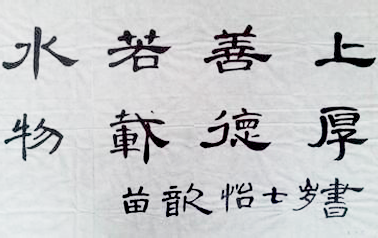 上善若水
厚德載物
書岁七怡歆苗